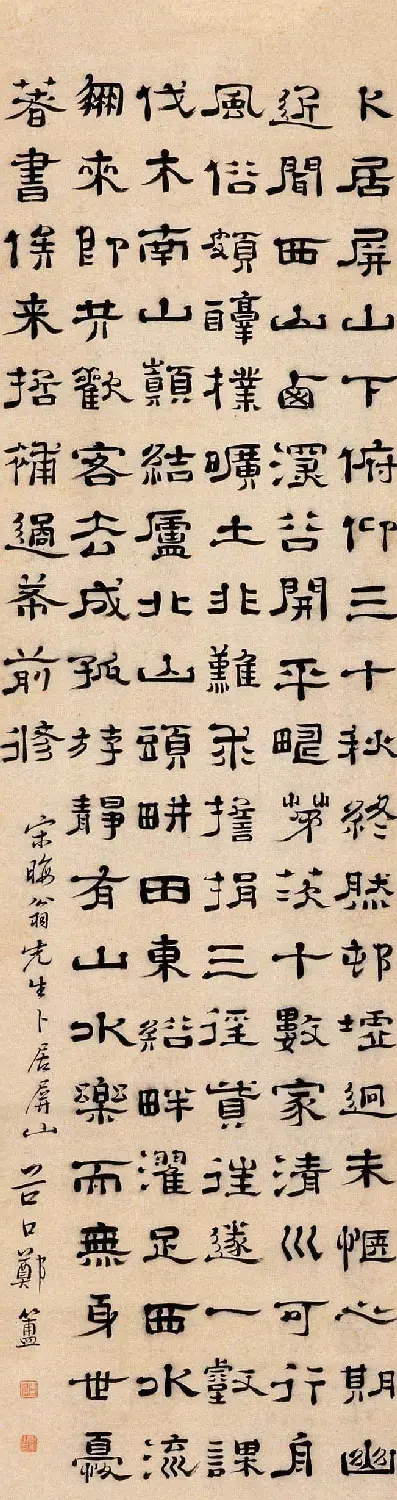 卜居屏山下俯仰三十秋終然邨墟迥未愜心期幽
近聞西山鹵深谷開平疇茅茨十數家清川可行舟
風俗頗醇撲曠土非難求捐三徑貲往遂一壑
伐木南山顛結廬北山頭畊田東谿畔濯足西水流
來即共歡客去成孤游靜有山水樂而無身世憂
著書俟来哲補過希前修
宋晦翁先生卜居屏山 谷口鄭簠